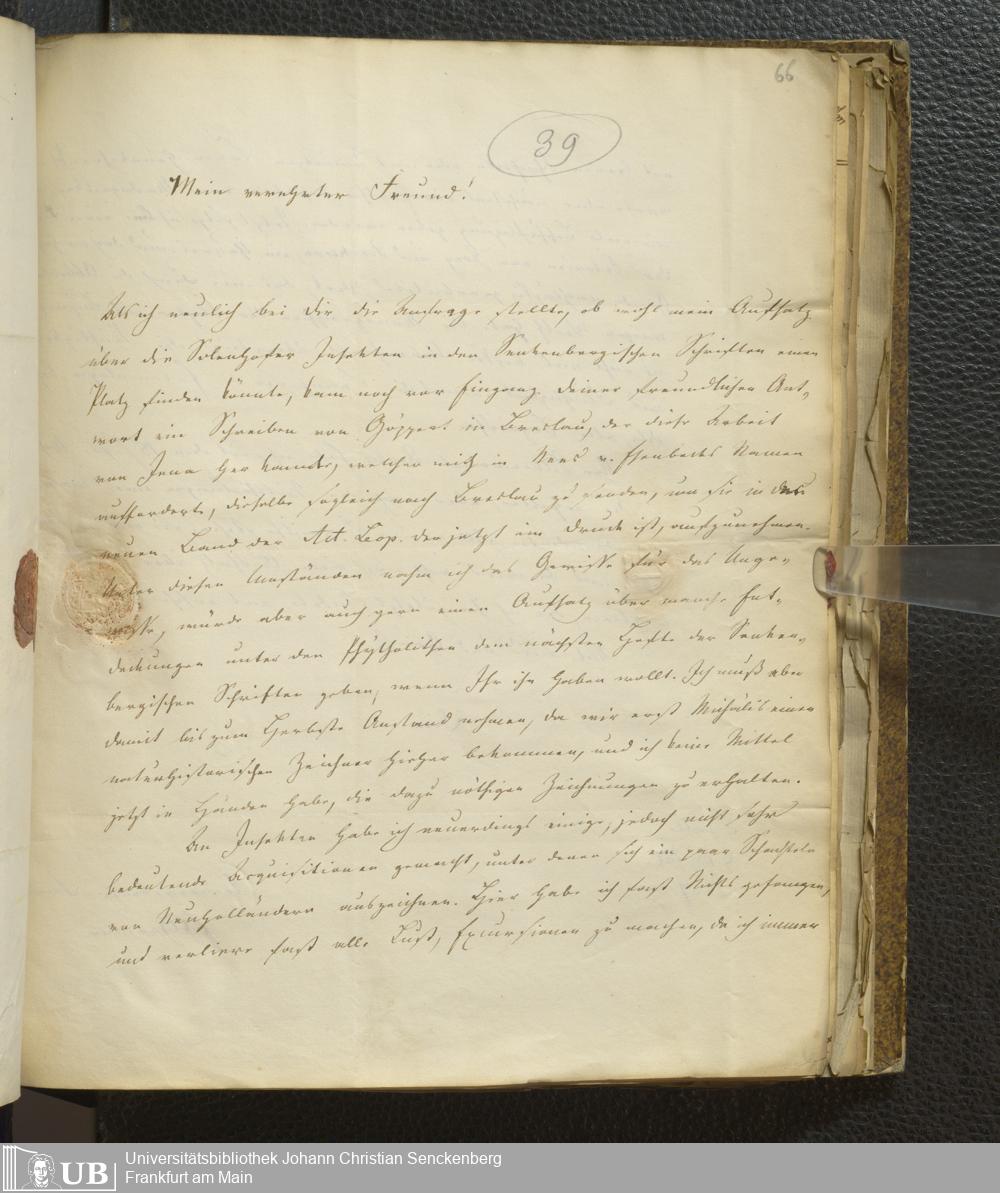 66
39
Mein verehrter Freund!
Als ich neulich bei Dir die Anfrage stellte, ob wohl mein Aufsatz
über die Solenhofer Insekten in den Senkenbergischen Schriften einen
Platz finden könnte, kam noch vor Eingang Deiner freundlichen Ant-
wort ein Schreiben von Göppert in Breslau, der diese Arbeit
von Jena her kannte, welcher mich in Nees v. Esenbecks Namen
aufforderte, dieselbe sogleich nach Breslau zu senden, um sie in den
neuen Band der Act. Leop. der jetzt im Druck ist, aufzunehmen.
Unter diesen Umständen nahm ich das Gewisse für das Unge-
wisse, würde aber auch gern einen Aufsatz über manche Ent-
deckungen unter den Phytholithen dem nächsten Hefte der Senken-
bergischen Schriften geben, wenn Ihr ihn haben wollt. Ich muß aber
damit bis zum Herbste Anstand nehmen, da wir erst Michälis einen
naturhistorischen Zeichner hieher bekommen, und ich keine Mittel
jetzt in Händen habe, die dazu nöthigen Zeichnungen zu erhalten.
An Insekten habe ich neuerdings einige, jedoch nicht sehr
bedeutende Acquisitionen gemacht, unter denen sich ein paar Schachteln
von Neuholländern auszeichnen. Hier habe ich fast Nichts gefangen,
und verliere fast alle Lust, Excursionen zu machen, da ich immer
UB
Universitätsbibliothek Johann Christian Senckenberg
Frankfurt am Main